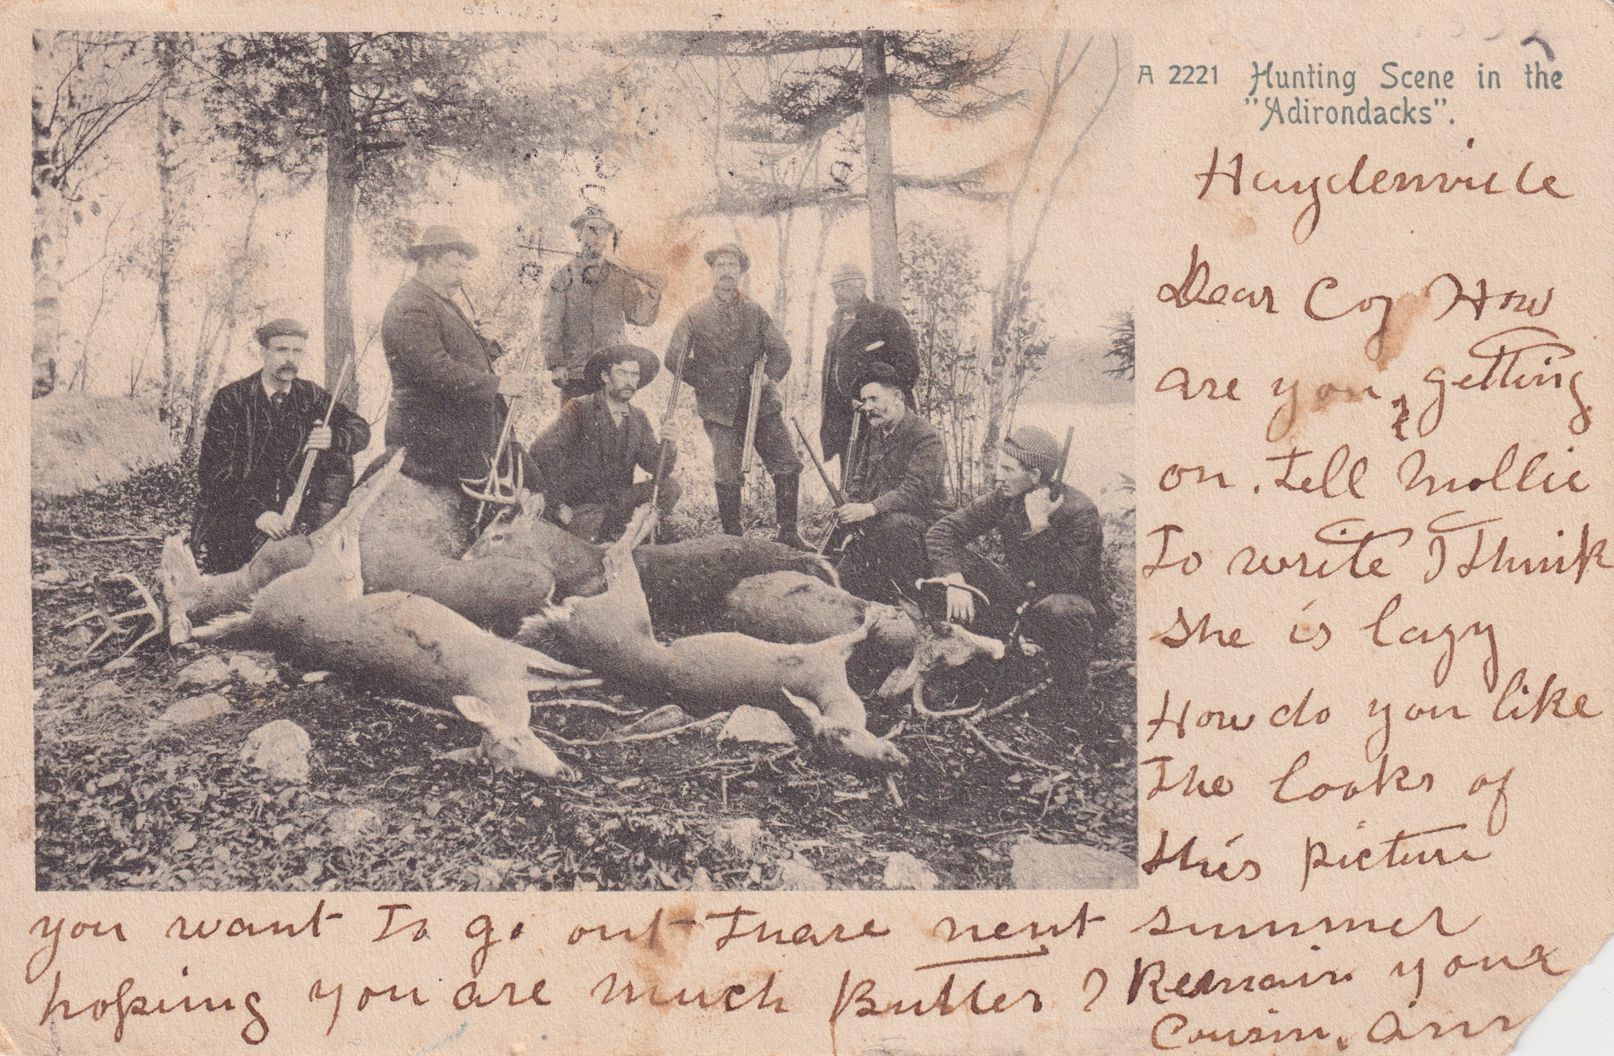 A 2221 Hunting Scene in the
"Adirondacks".
Haydenville
Dear Coz How
are you getting
on. Tell Mollie
To write I Think
She is lazy
How do you like
The looks of
this picture
you want To go out Thare next summer
hoping you are much Butter I Remain your
Cousin, Ann